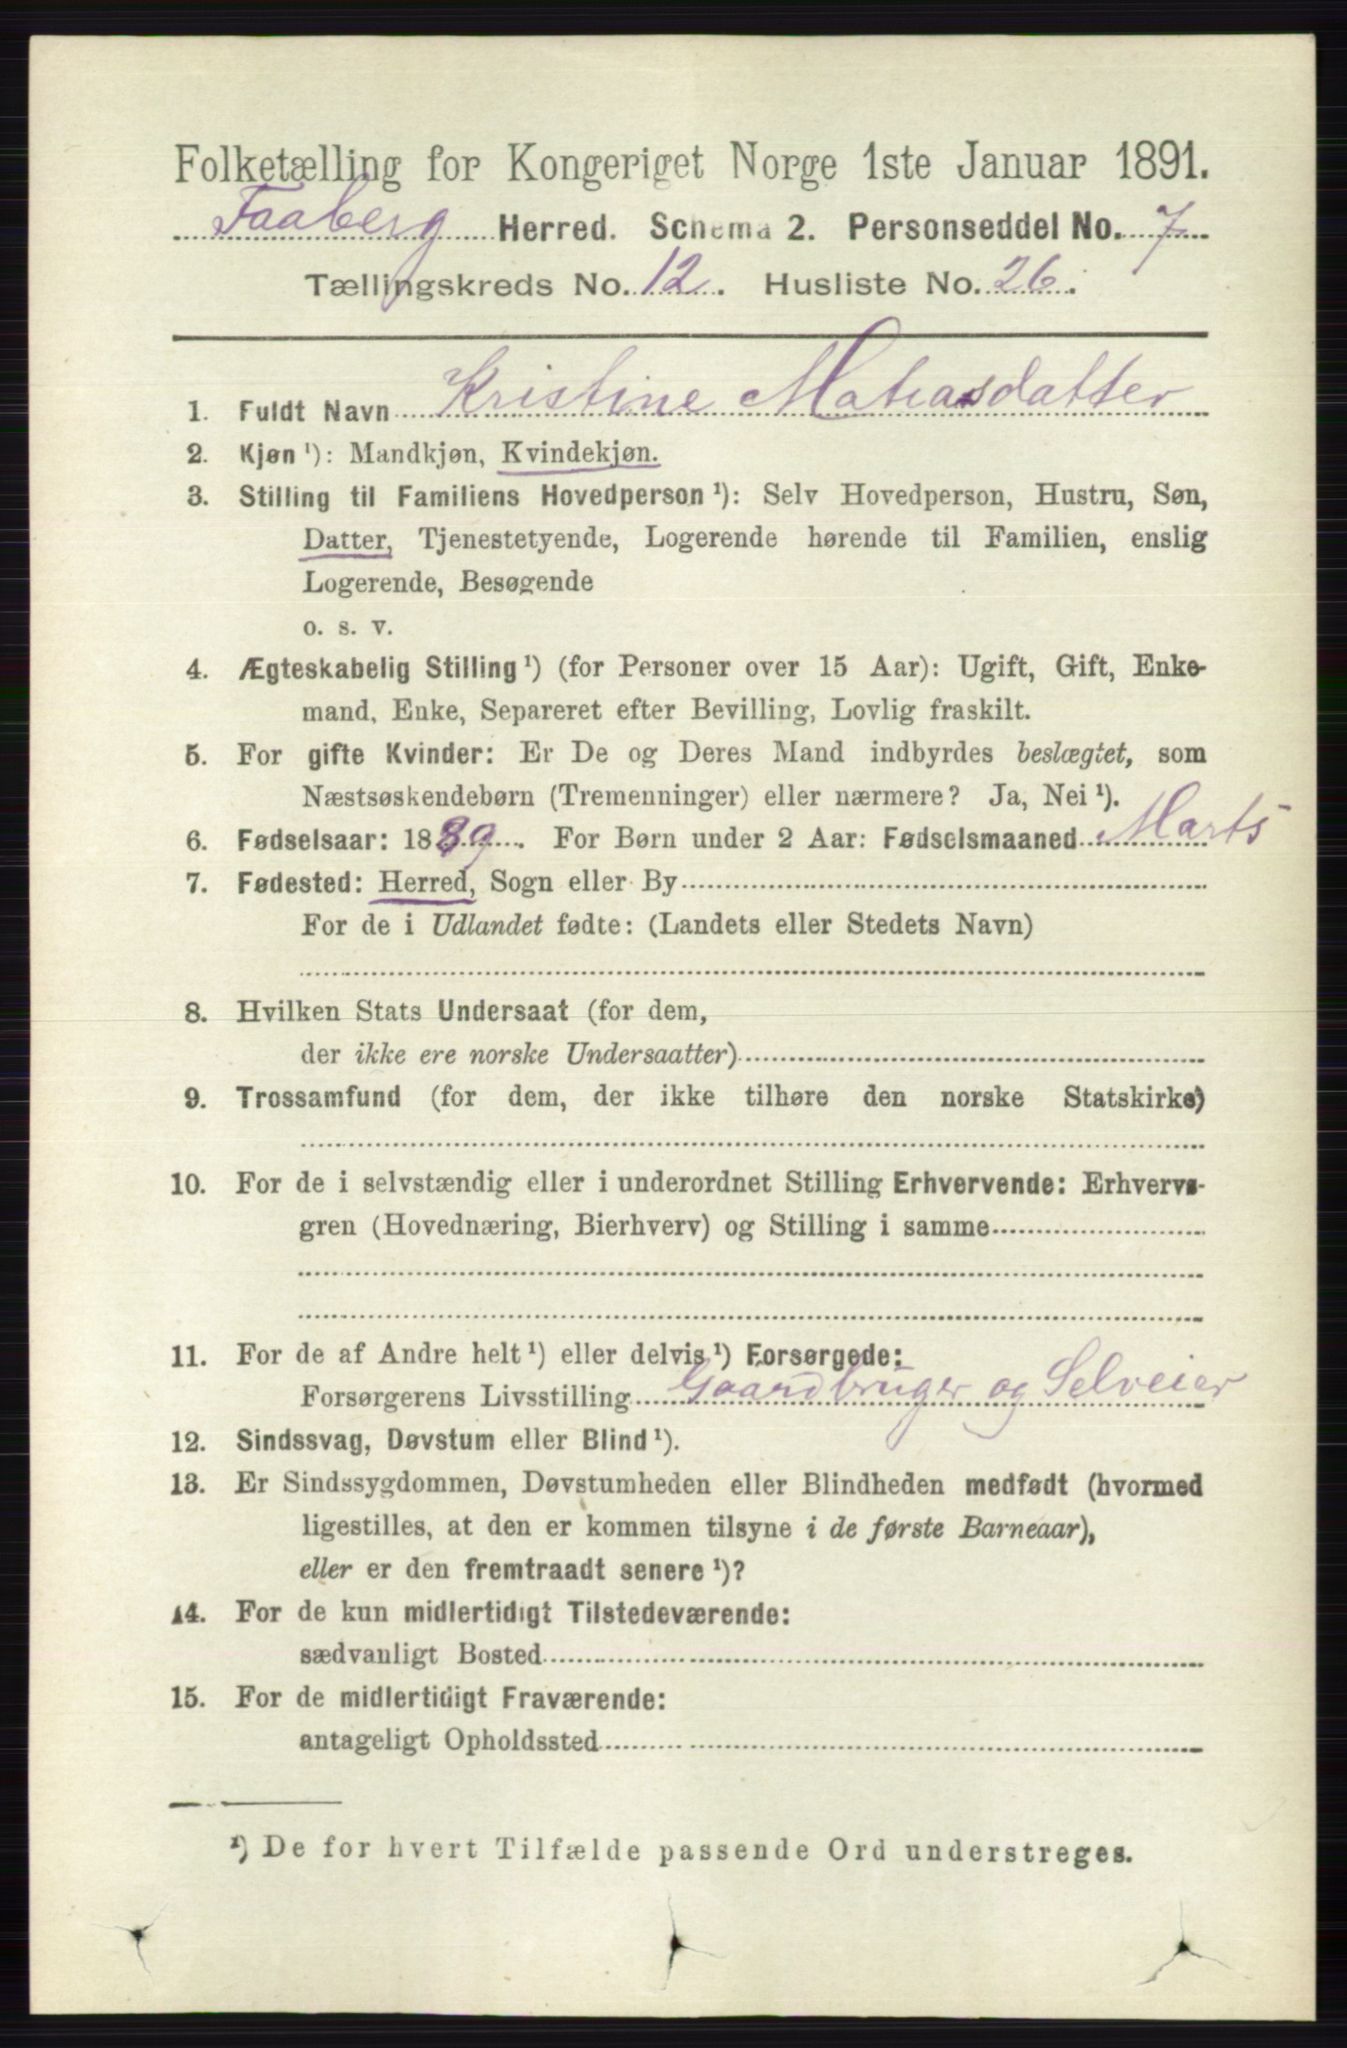 Folketælling for Kongeriget Norge 1ste Januar 1891.
Faaberg Herred. Schema 2. Personseddel No. 7
Tællingskreds No. 12. Husliste No. 26.
1. Fuldt Navn Kristine Matiasdatter
2. Kjøn ¹): Mandkjøn, Kvindekjøn.
3. Stilling til Familiens Hovedperson ¹): Selv Hovedperson, Hustru, Søn,
Datter, Tjenestetyende, Logerende hørende til Familien, enslig
Logerende, Besøgende
o. s. v.
4. Ægteskabelig Stilling ¹) (for Personer over 15 Aar): Ugift, Gift, Enke-
mand, Enke, Separeret efter Bevilling, Lovlig fraskilt.
5. For gifte Kvinder: Er De og Deres Mand indbyrdes beslægtet, som
Næstsøskendebørn (Tremenninger) eller nærmere? Ja, Nei ¹).
6. Fødselsaar: 1889. For Børn under 2 Aar: Fødselsmaaned Marts
7. Fødested: Herred, Sogn eller By
For de i Udlandet fødte: (Landets eller Stedets Navn)
8. Hvilken Stats Undersaat (for dem,
der ikke ere norske Undersaatter)
9. Trossamfund (for dem, der ikke tilhøre den norske Statskirke)
10. For de i selvstændig eller i underordnet Stilling Erhvervende: Erhvervs-
gren (Hovednæring, Bierhverv) og Stilling i samme
11. For de af Andre helt ¹) eller delvis ¹) Forsørgede:
Forsørgerens Livsstilling Gaardbruger og Selveier
12. Sindssvag, Døvstum eller Blind ¹).
13. Er Sindssygdommen, Døvstumheden eller Blindheden medfødt (hvormed
ligestilles, at den er kommen tilsyne i de første Barneaar),
eller er den fremtraadt senere ¹)?
14. For de kun midlertidigt Tilstedeværende:
sædvanligt Bosted
15. For de midlertidigt Fraværende:
antageligt Opholdssted
¹) De for hvert Tilfælde passende Ord understreges.